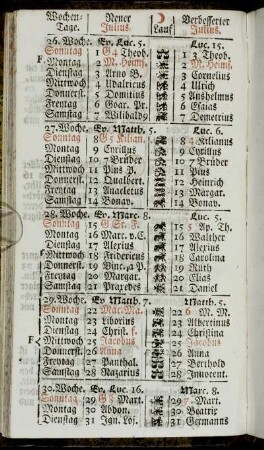 Wochen- Neuer Verbesserter
Tage. Julius. Lauf Julius.
26. Woche. Ev. Luc. 5. Luc. 15.
Sonntag 1 G 4 Theob. 1 3 Theob.
Montag 2 M. Heims. 2 M. Heims.
Dienstag 3 Arno B. 3 Cornelius
Mittwoch 4 Udalricus 4 Ulrich
Donnerst. 5 Domitius 5 Anshelmus
Freytag 6 Goar. Pr. 6 Esaias
Samstag 7 Wilibald 7 Demetrius
27. Woche. Ev. Matth. 5. Luc. 6.
Sonntag 8 G 5 Kilian. 8 4 Kilianus
Montag 9 Cyrillus 9 Cyrillus
Dienstag 10 7 Brüder 10 7 Brüder
Mittwoch 11 Pius P. 11 Pius
Donnerst. 12 Gualbert. 12 Heinrich
Freytag 13 Anacletus 13 Margar.
Samstag 14 Bonav. 14 Bonav.
28. Woche. Ev. Marc. 8. Luc. 5.
Sonntag 15 G 15 5 Ap. Th.
Montag 16 Mar. v. C. 16 Walther
Dienstag 17 Alexius 17 Alexius
Mittwoch 18 Fridericus 18 Carolina
Donnerst. 19 Vinc. a P. 19 Ruth
Freytag 20 Margar. 20 Elias
Samstag 21 Praxedes 21 Daniel
29. Woche. Ev. Matth. 7. Matth. 5.
Sonntag 22 Mar. Ma. 22 6 M. M.
Montag 23 Liborius 23 Albertinus
Dienstag 24 Christ. J. 24 Christina
F Mittwoch 25 Jacobus 25 Jacobus
Donnerst. 26 Anna 26 Anna
F Freytag 27 Panthal. 27 Berthold
Samstag 28 Nazarius 28 Innocent.
30. Woche. Ev. Luc. 16. Marc. 8.
Sonntag 29 G 8 Mart. 29 7 Mart.
Montag 30 Abdon. 30 Beatrix
Dienstag 31 Ign. Loj. 31 Germanus